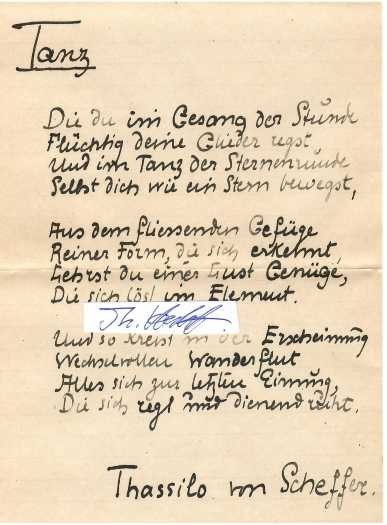 Tanz
Die du im Gesang der Stunde
Flüchtig deine Glieder regst
Und im Tanz der Sternenrunde
Selbst dich wie ein Stern bewegst,
Aus dem fliessenden Gefüge
Reiner Form, die sich erkennt,
Lehrst du einer Lust Genüge,
Die sich löst im Element.
Und so kreist in der Erscheinung
Wechselvollen Wanderflut
Alles sich zur letzten Einung,
Die sich regt und dienend
Thassilo von Scheffer.